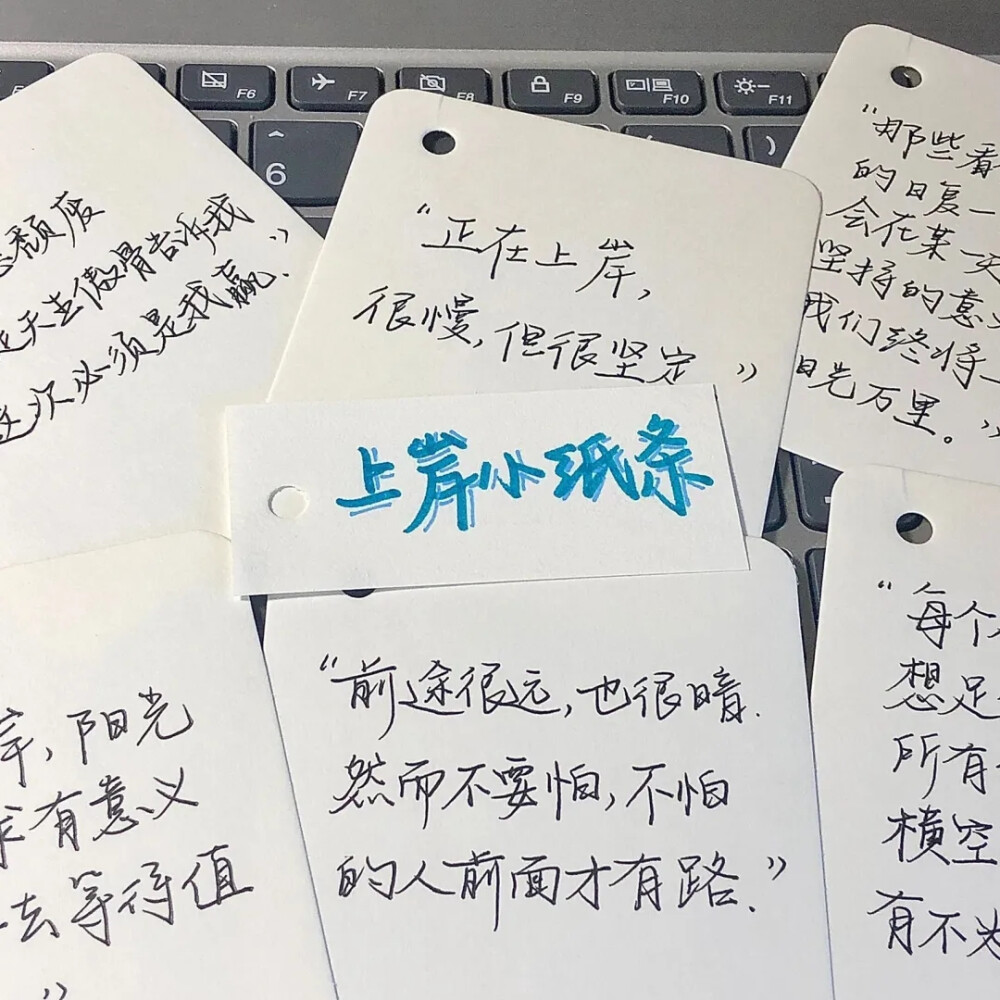 F6
F7
F8
F9
F10
F11
6
)
颓废
天生傲骨告诉我
这次必须是我赢.”
“正在上岸,
很慢,但很坚定”
“那些看
的日复一
会在某一天
坚持的意义
我们终将
阳光万里。”
上岸小纸条
岸,阳光
有意义
去等得值
”
“前途很远,也很暗.
然而不要怕,不怕
的人前面才有路.”
“每个
想足
所有
横空
有不为